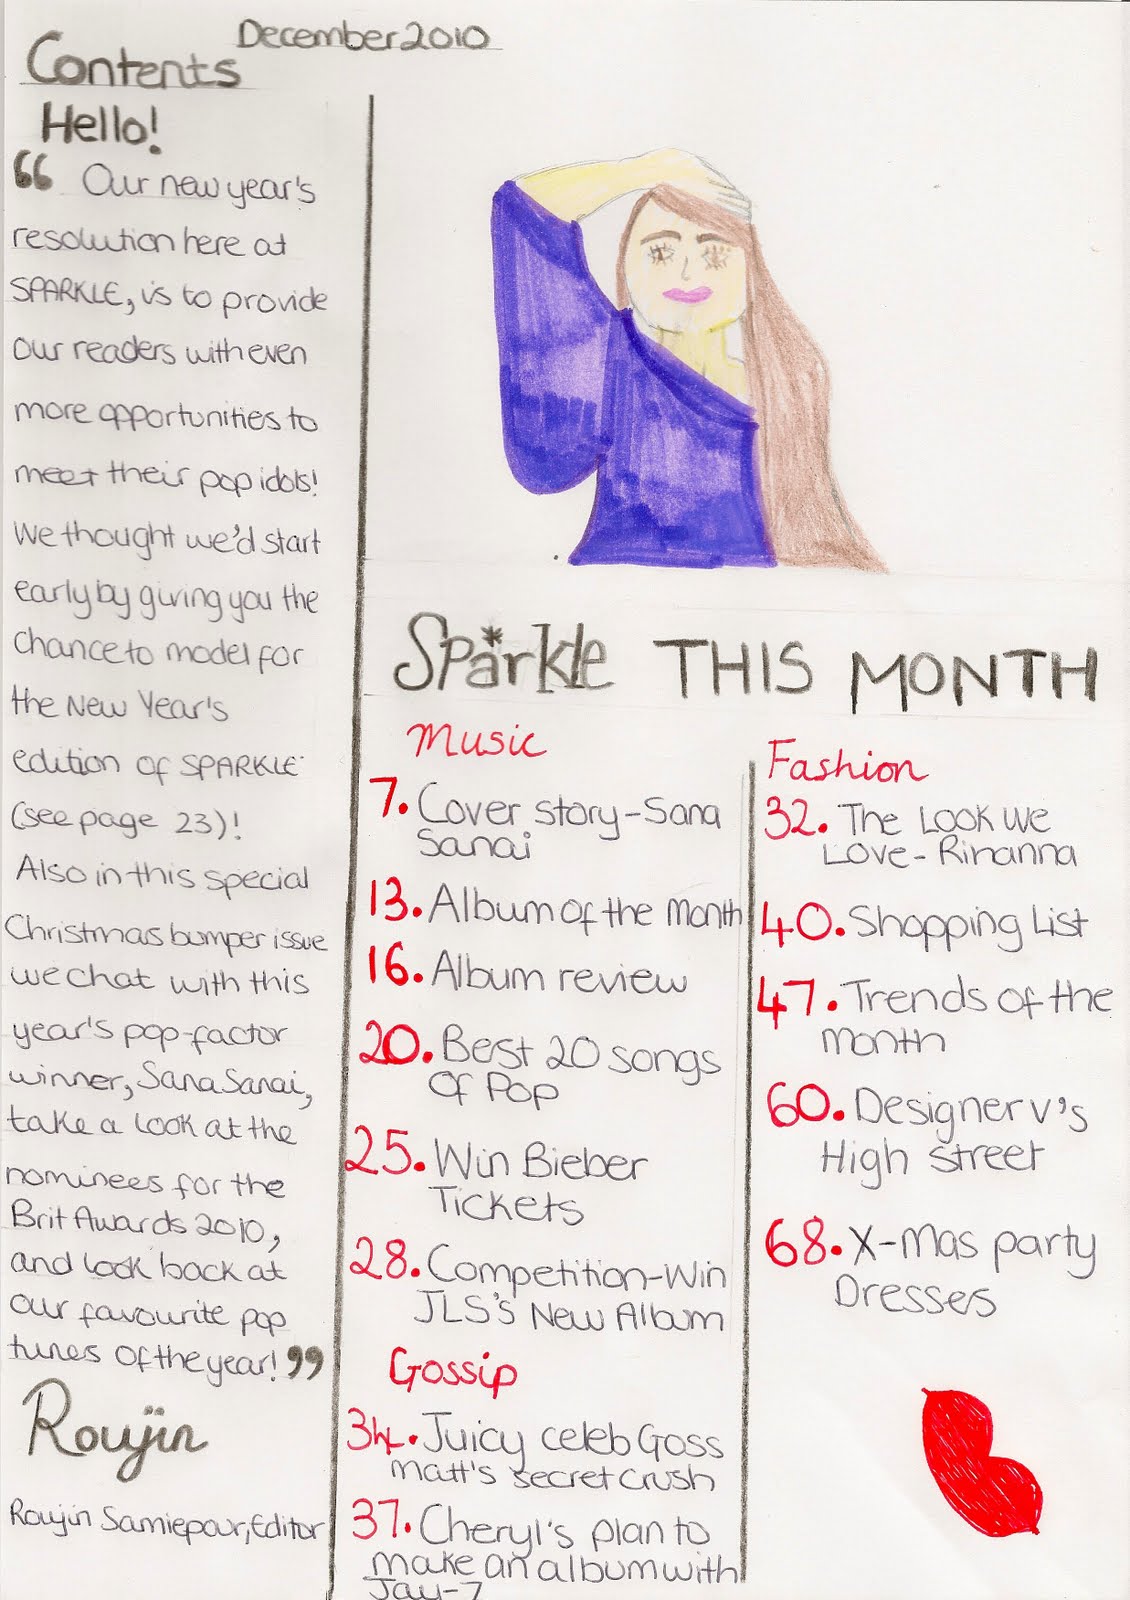 December 2010
Contents
Hello!
“ Our new year's
resolution here at
SPARKLE, is to provide
our readers with even
more opportunities to
meet their pop idols!
We thought we'd start
early by giving you the
chance to model for
the New Year's
edition of SPARKLE
(see page 23)!
Also in this special
Christmas bumper issue
we chat with this
year's pop-factor
winner, Sana Sanai,
take a look at the
nominees for the
Brit Awards 2010,
and look back at
our favourite pop
tunes of the year! ”
Roujin
Roujin Samiepour, Editor
Sparkle THIS MONTH
Music
7. Cover story-Sana
Sanai
13. Album of the Month
16. Album review
20. Best 20 songs
Of Pop
25. Win Bieber
Tickets
28. Competition-Win
JLS's New Album
Gossip
34. Juicy celeb Goss
Matt's secret crush
37. Cheryl's plan to
make an album with
Jay-Z
Fashion
32. The Look We
Love- Rihanna
40. Shopping List
47. Trends of the
month
60. Designer v's
High street
68. X-Mas party
Dresses